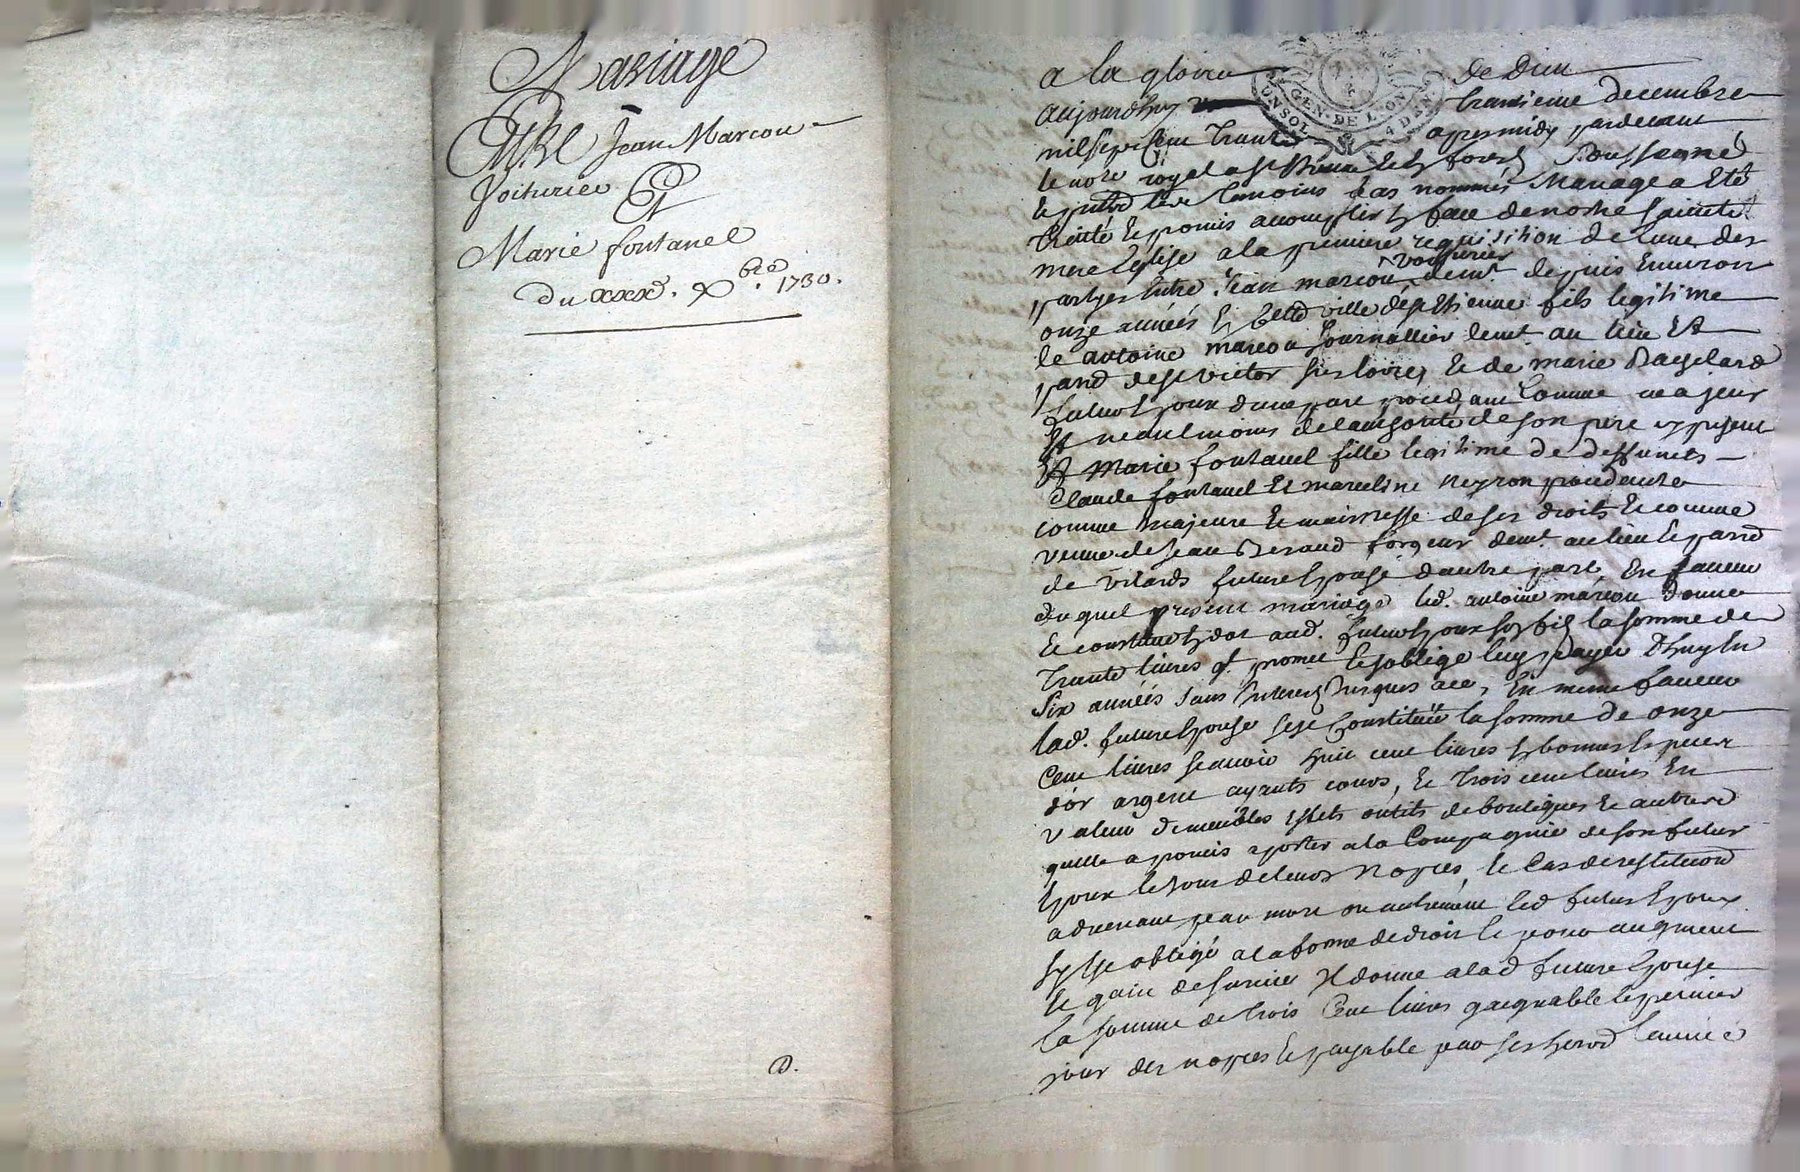 Mariage
Entre Jean Marcou
Voiturier Et
Marie fontanel
Du xxxe. Xbre. 1730.
D.
a la gloire de Dieu
aujourdhuy trantieme decembre
mil sept cent trante apres midy pardevant
le nore royal a st Etienne en forest soussigné
et presents les temoins bas nommés Mariage a Eté
traitté et promis accomplir en face de nostre sainte
mere Eglise a la premiere requisition de lune des
partyes Entre Jean marcou voiturier demt depuis Environ
onze années en cette ville de st Etienne fils legitime
de antoine marcou Journallier demt au lieu Et
parse de st victor sur loire, et de marie
futur Epoux dune part procedant Comme majeur
Et neanlmoins de lauthorité de son pere cy present
Et Marie fontanel fille legitime de deffunts
Claude fontanel Et marceline neyron procedante
comme majeure Et maistresse de ses droits Et comme
veuve de Jean Beraud forgeur demt au lieu Et parse
de vilards future Epouse dautre part En faveur
du quel present mariage led. antoine marcou donne
Et constitue En dot aud. futur Epoux son fils la somme de
trante livres qil promet Et soblige luy payer Dhuy En
Six années sans Interest Jusques a ce, En meme faveur
lad. future Epouse sest Constituée la somme de onze
Cent livres scavoir huit cent livres En bonnes Especes
dor argent ayants cours, Et trois cent livres En
valeur de meubles Effets outils de boutiques Et autres
quelle a promis aporter a la Compagnie de son futur
Epoux le Jour de leurs Nopces, Et Cas de restitution
advenant par mort ou autrement led futur Epoux
sy Est obligé a la forme de droit Et pour augment
Et gain de survie Il donne a lad future Epouse
la somme de trois Cent livres gaignable le premier
jour des nopces Et payable par ses hers lannée